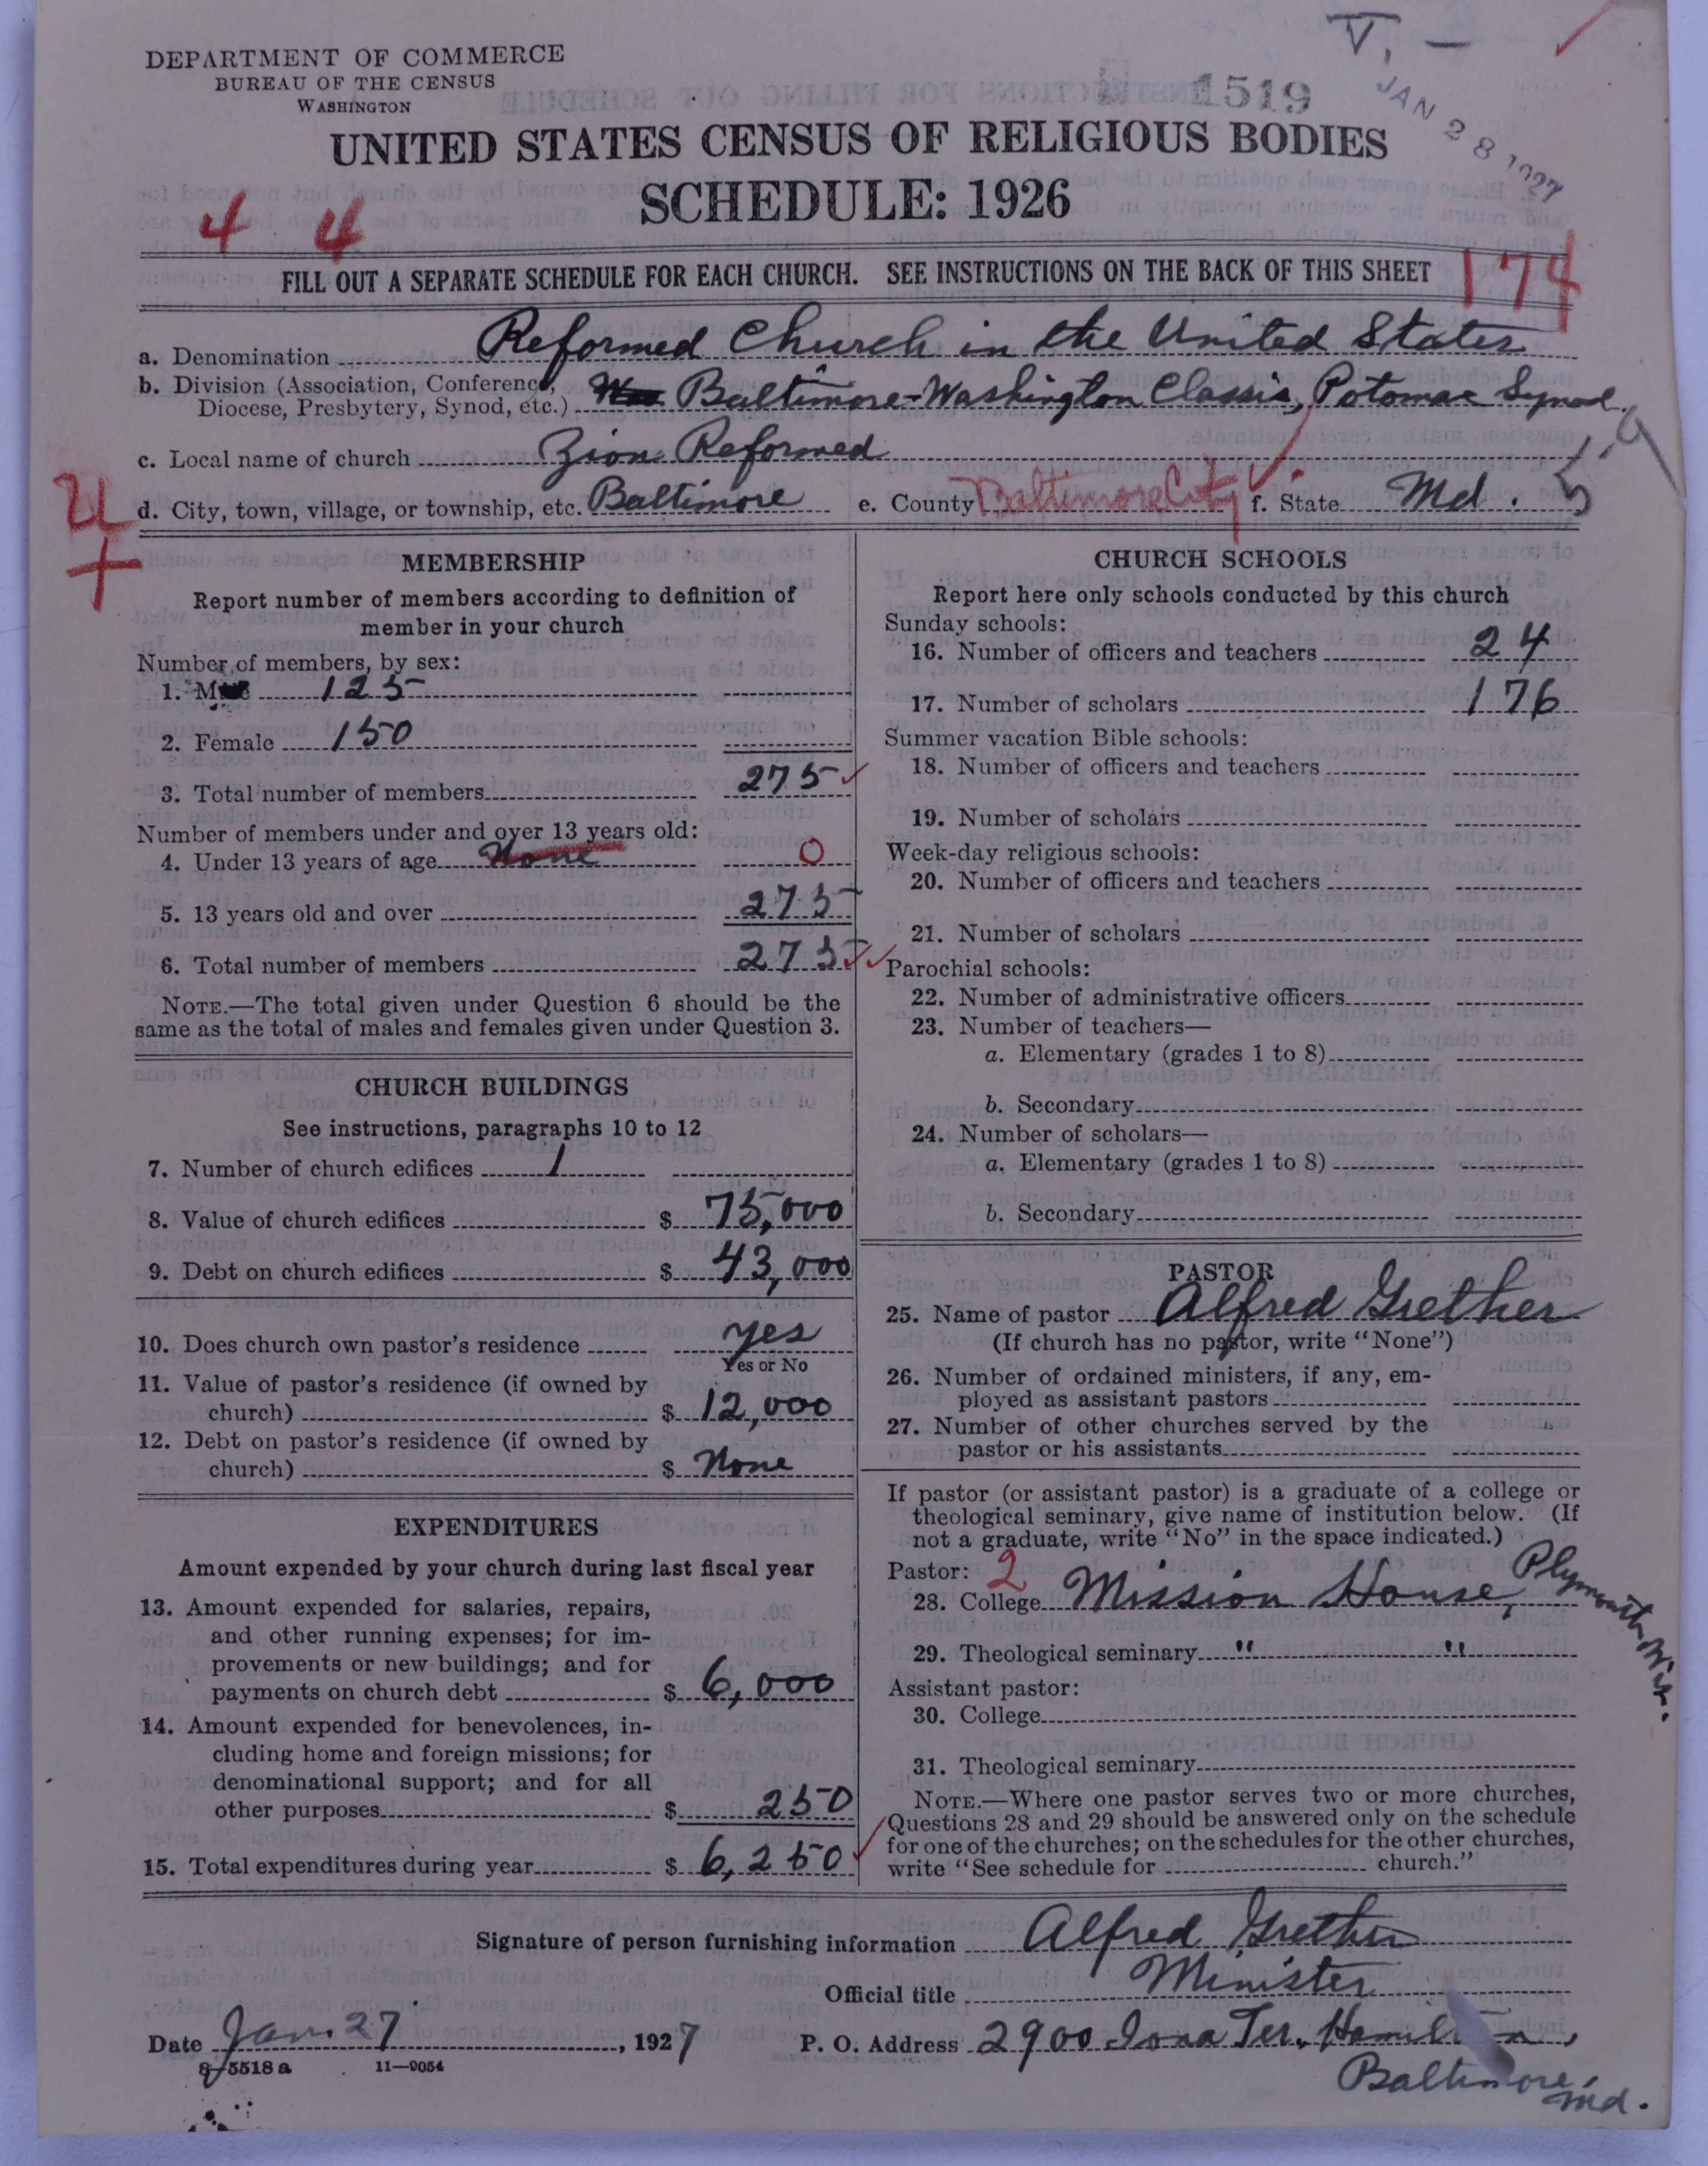 V. —
DEPARTMENT OF COMMERCE
BUREAU OF THE CENSUS
WASHINGTON
1519
JAN 28 1927
UNITED STATES CENSUS OF RELIGIOUS BODIES
SCHEDULE: 1926
4 4
FILL OUT A SEPARATE SCHEDULE FOR EACH CHURCH. SEE INSTRUCTIONS ON THE BACK OF THIS SHEET
174
a. Denomination Reformed Church in the United States
b. Division (Association, Conference, Diocese, Presbytery, Synod, etc.) Baltimore-Washington Classis, Potomac Synod
c. Local name of church Zion Reformed
d. City, town, village, or township, etc. Baltimore e. County Baltimore City f. State Md.
MEMBERSHIP
Report number of members according to definition of
member in your church
Number of members, by sex:
1. Male 125
2. Female 150
3. Total number of members 275
Number of members under and over 13 years old:
4. Under 13 years of age None 0
5. 13 years old and over 275
6. Total number of members 275
NOTE.—The total given under Question 6 should be the
same as the total of males and females given under Question 3.
CHURCH BUILDINGS
See instructions, paragraphs 10 to 12
7. Number of church edifices 1
8. Value of church edifices $ 75,000
9. Debt on church edifices $ 43,000
10. Does church own pastor's residence yes
Yes or No
11. Value of pastor's residence (if owned by
church) $ 12,000
12. Debt on pastor's residence (if owned by
church) $ None
EXPENDITURES
Amount expended by your church during last fiscal year
13. Amount expended for salaries, repairs,
and other running expenses; for im-
provements or new buildings; and for
payments on church debt $ 6,000
14. Amount expended for benevolences, in-
cluding home and foreign missions; for
denominational support; and for all
other purposes $ 250
15. Total expenditures during year $ 6,250
CHURCH SCHOOLS
Report here only schools conducted by this church
Sunday schools:
16. Number of officers and teachers 24
17. Number of scholars 176
Summer vacation Bible schools:
18. Number of officers and teachers
19. Number of scholars
Week-day religious schools:
20. Number of officers and teachers
21. Number of scholars
Parochial schools:
22. Number of administrative officers
23. Number of teachers—
a. Elementary (grades 1 to 8)
b. Secondary
24. Number of scholars—
a. Elementary (grades 1 to 8)
b. Secondary
PASTOR
25. Name of pastor Alfred Grether
(If church has no pastor, write "None")
26. Number of ordained ministers, if any, em-
ployed as assistant pastors
27. Number of other churches served by the
pastor or his assistants
If pastor (or assistant pastor) is a graduate of a college or
theological seminary, give name of institution below. (If
not a graduate, write "No" in the space indicated.)
Pastor: 2
28. College Mission House, Plymouth, Wis.
29. Theological seminary " "
Assistant pastor:
30. College
31. Theological seminary
NOTE.—Where one pastor serves two or more churches,
Questions 28 and 29 should be answered only on the schedule
for one of the churches; on the schedules for the other churches,
write "See schedule for church."
Signature of person furnishing information Alfred Grether
Official title Minister
Date Jan. 27, 1927 P. O. Address 2900 Iona Ter. Hamilton,
Baltimore, Md.
8-5518a 11—9054